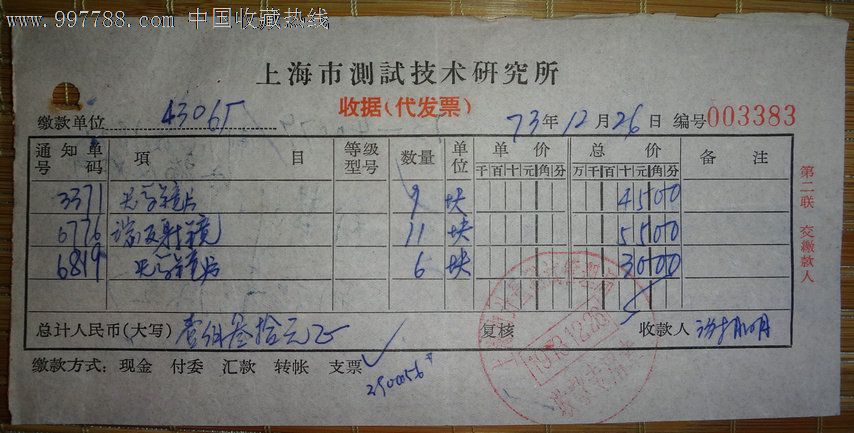 www.997788.com 中国收藏热线
上海市測試技术研究所
收据(代发票)
缴款单位 43065 73年12月26日 编号 003383
通知单号码 項目 等级型号 数量 单位 单价 总价 备注
千百十元角分 万千百十元角分
3371 光学鏡片 9 块 4500
6776 反射鏡 11 块 5500
6819 光学鏡片 6 块 3000
总计人民币(大写) 壹佰叁拾元正 复核 收款人
缴款方式: 现金 付委 汇款 转帐 支票 ✓
第二联 交缴款人
1973.12.26